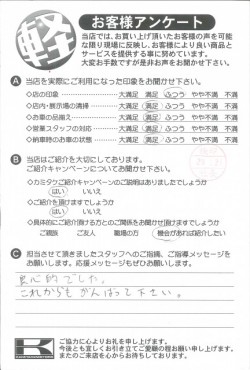 軽
お客様アンケート
当店では、お買い上げ頂いたお客様の声を可能
な限り現場に反映し、お客様により良い商品と
サービスを提供する事に努めています。
大変お手数ですが是非お声をお聞かせ下さい。
A 当店を実際にご利用になった印象をお聞かせ下さい。
◇店の印象 大満足 満足 ふつう やや不満 不満
◇店内・展示場の清掃 大満足 満足 ふつう やや不満 不満
◇お車の品揃え 大満足 満足 ふつう やや不満 不満
◇営業スタッフの対応 大満足 満足 ふつう やや不満 不満
◇納車時のお車の状態 大満足 満足 ふつう やや不満 不満
B 当店はご紹介を大切にしております。
ご紹介キャンペーンについてお聞かせ下さい。
◇カミタケご紹介キャンペーンのご説明はありましたでしょうか
はい いいえ
◇ご紹介を頂けますでしょうか
はい いいえ
◇具体的にご紹介頂ける方とのご関係をお聞かせ頂けますでしょうか
ご親族 ご友人 職場の方 機会があれば紹介したい
C 担当させて頂きましたスタッフへのご指摘、ご指導メッセージを
お願いします。応援メッセージもぜひお願いします。
良心的でした。
これからもがんばって下さい。
ご協力に心よりお礼を申し上げます。
今後とも宜しくお引き立てご愛顧の程お願い申し上げます。
またのご来店を心からお待ちしております。